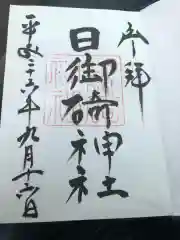 奉拝
日御碕神社
平成二十六年九月十六日